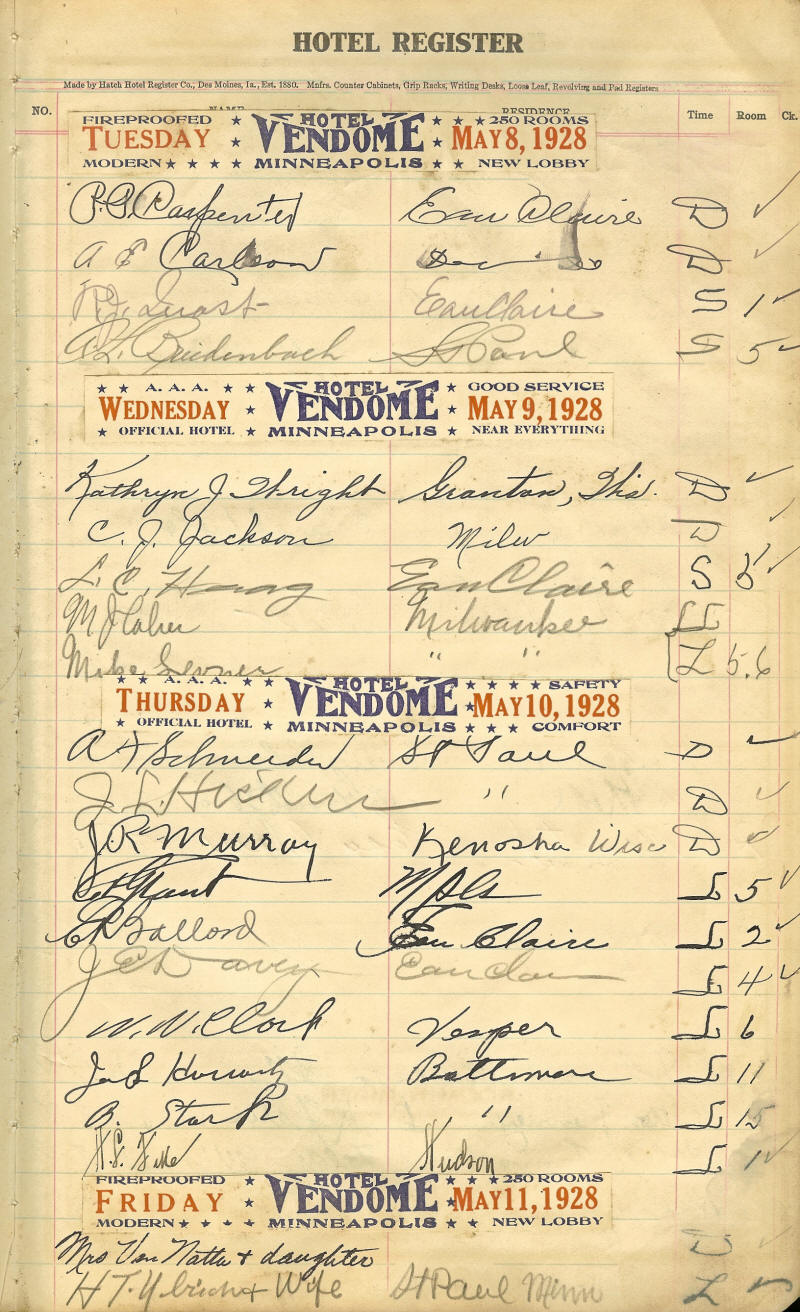 HOTEL REGISTER
Made by Hatch Hotel Register Co., Des Moines, Ia., Est. 1880. Mnfrs. Counter Cabinets, Grip Racks, Writing Desks, Loose Leaf, Revolving and Pad Registers
NO. NAME RESIDENCE Time Room Ck.
FIREPROOFED HOTEL 250 ROOMS
TUESDAY VENDOME MAY 8, 1928
MODERN MINNEAPOLIS NEW LOBBY
P. G. Carpenter Eau Claire D ✓
A E Carlson D ✓
Quast Eau Claire S 1 ✓
A. L. Breidenbach St Paul S 5 ✓
A.A.A. HOTEL GOOD SERVICE
WEDNESDAY VENDOME MAY 9, 1928
OFFICIAL HOTEL MINNEAPOLIS NEAR EVERYTHING
Kathryn J. Wright Granton, Wis. D ✓
C. J. Jackson Milw D ✓
L. C. Eau Claire S 5 ✓
M J Milwaukee
Mike " " L 5.6
A.A.A. HOTEL SAFETY
THURSDAY VENDOME MAY 10, 1928
OFFICIAL HOTEL MINNEAPOLIS COMFORT
Schneider St Paul D ✓
J. " D ✓
J R Murray Kenosha Wisc D ✓
Grant Mpls L 5 ✓
Ballord Eau Claire L 2 ✓
J C Davey Eau Clair L 4 ✓
W. W. Clark Vesper L 6
Horwitz Baltimore L 11
B. Stark " L 15
Hudson L 1 ✓
FIREPROOFED HOTEL 250 ROOMS
FRIDAY VENDOME MAY 11, 1928
MODERN MINNEAPOLIS NEW LOBBY
Mrs Van Natta + daughter D ✓
H T. + Wife St Paul Minn L ✓